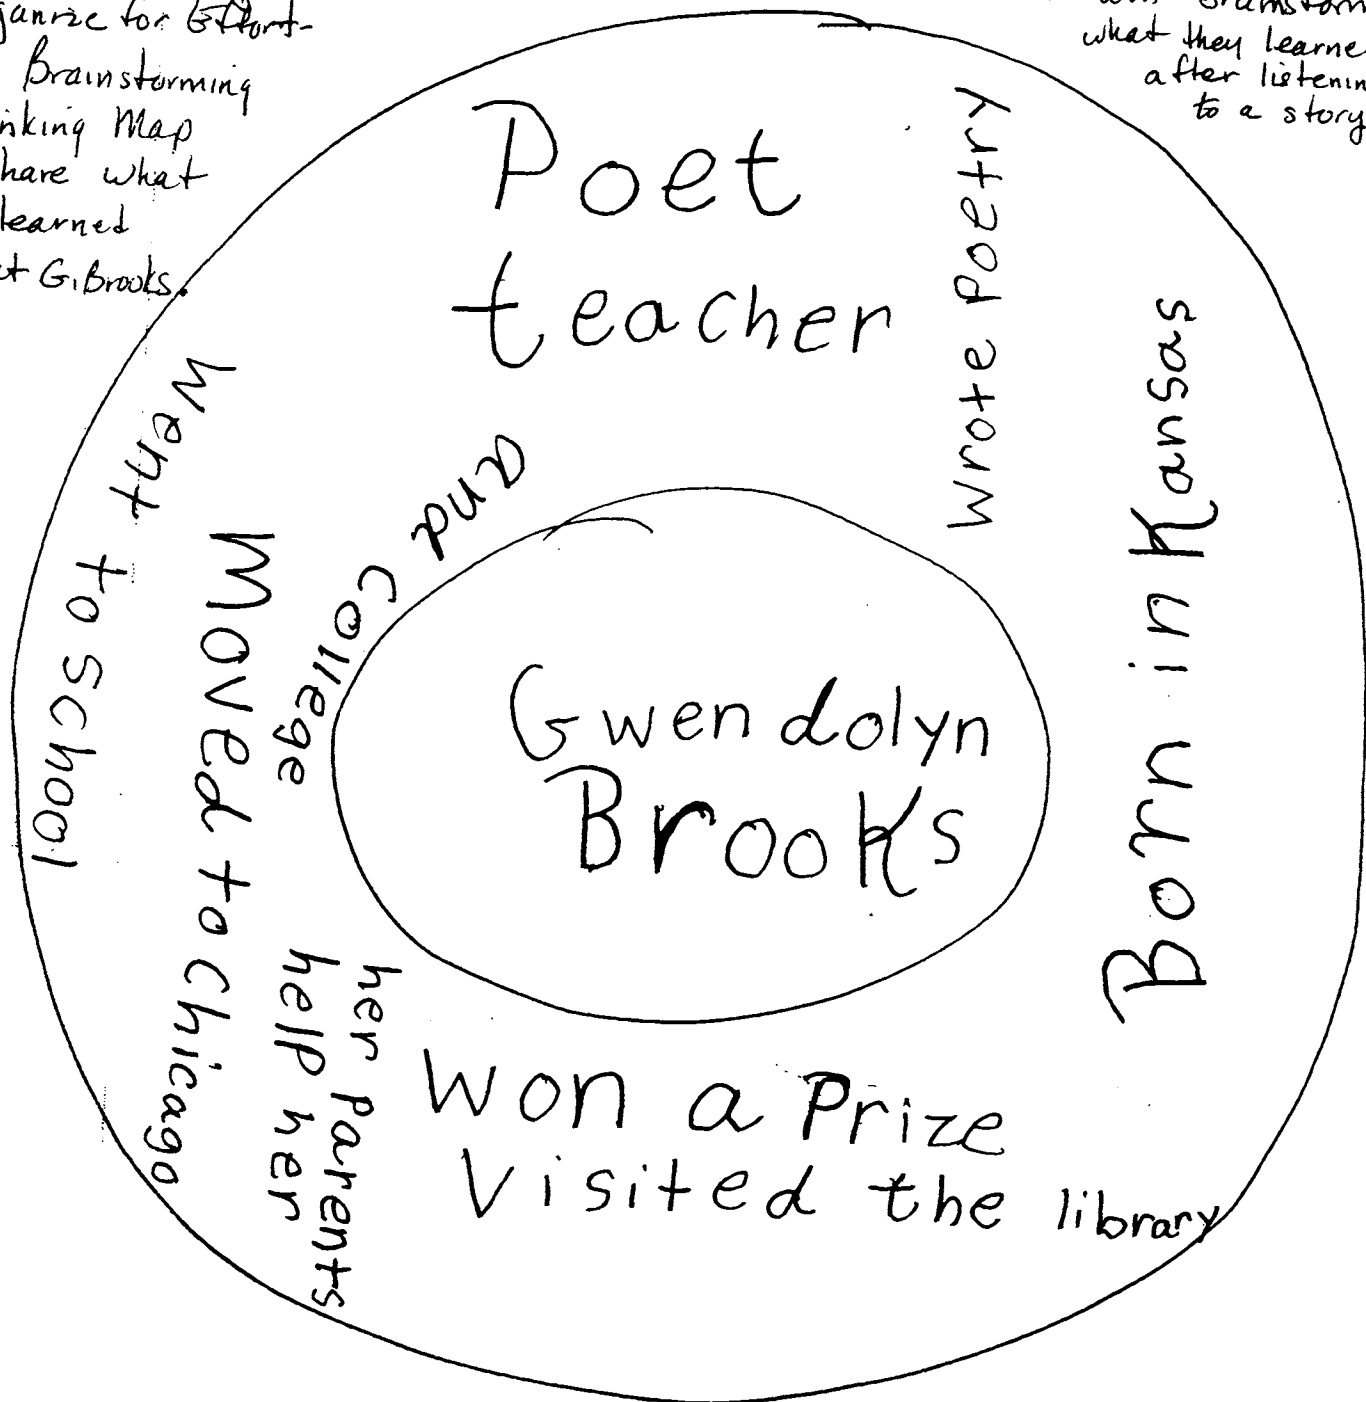 for Effort-
Brainstorming
Map
what
learned
G. Brooks.
Brainstorm
what they
after
to a story
Poet
teacher
Wrote Poetry
Born in Kansas
Went to School
and College
Moved to Chicago
her Parents
help her
Gwendolyn
Brooks
Won a Prize
Visited the library